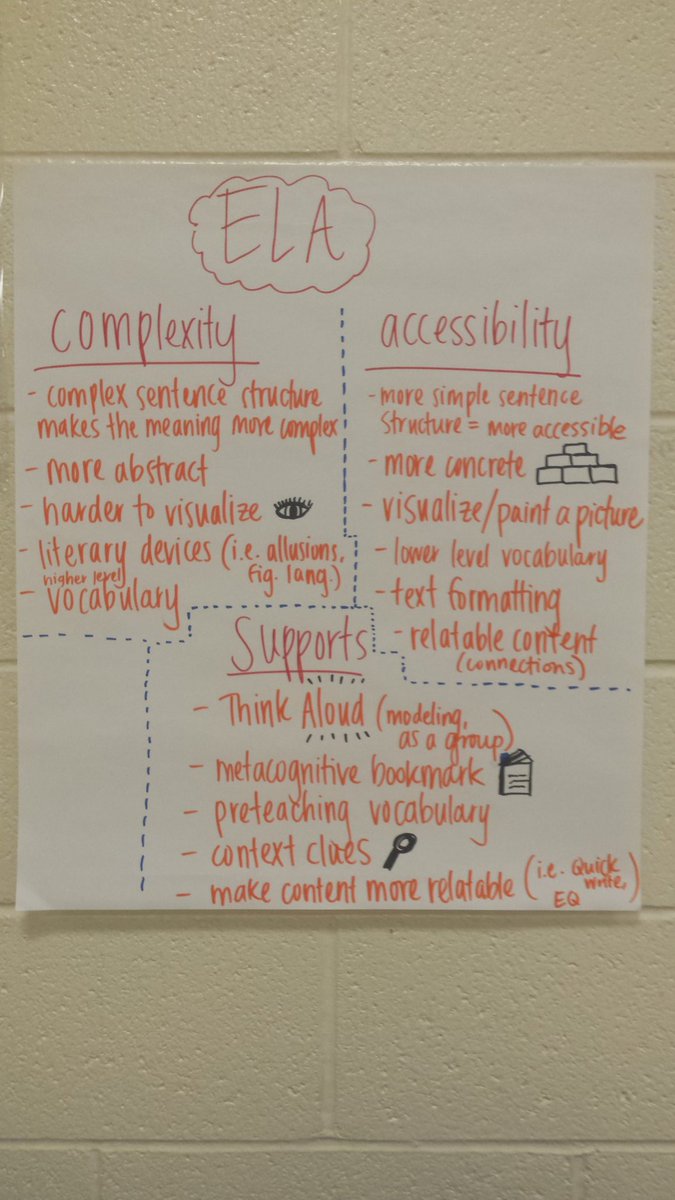 ELA
complexity
- complex sentence structure
makes the meaning more complex
- more abstract
- harder to visualize
- literary devices (i.e. allusions,
fig. lang.)
higher level)
- vocabulary
accessibility
- more simple sentence
structure = more accessible
- more concrete
- visualize/paint a picture
- lower level vocabulary
- text formatting
- relatable content
(connections)
Supports
- Think Aloud (modeling,
as a group)
- metacognitive bookmark
- preteaching vocabulary
- context clues
- make content more relatable (i.e. Quick
write,
EQ)